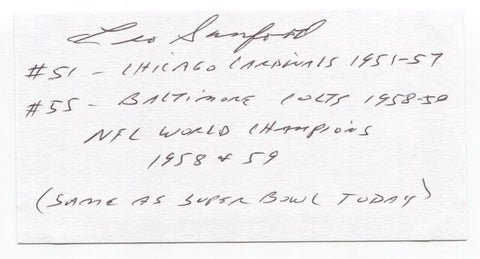 Leo Sanford
#51 - CHICAGO CARDINALS 1951-57
#55 - BALTIMORE COLTS 1958-59
NFL WORLD CHAMPIONS
1958 & 59
(SAME AS SUPER BOWL TODAY)